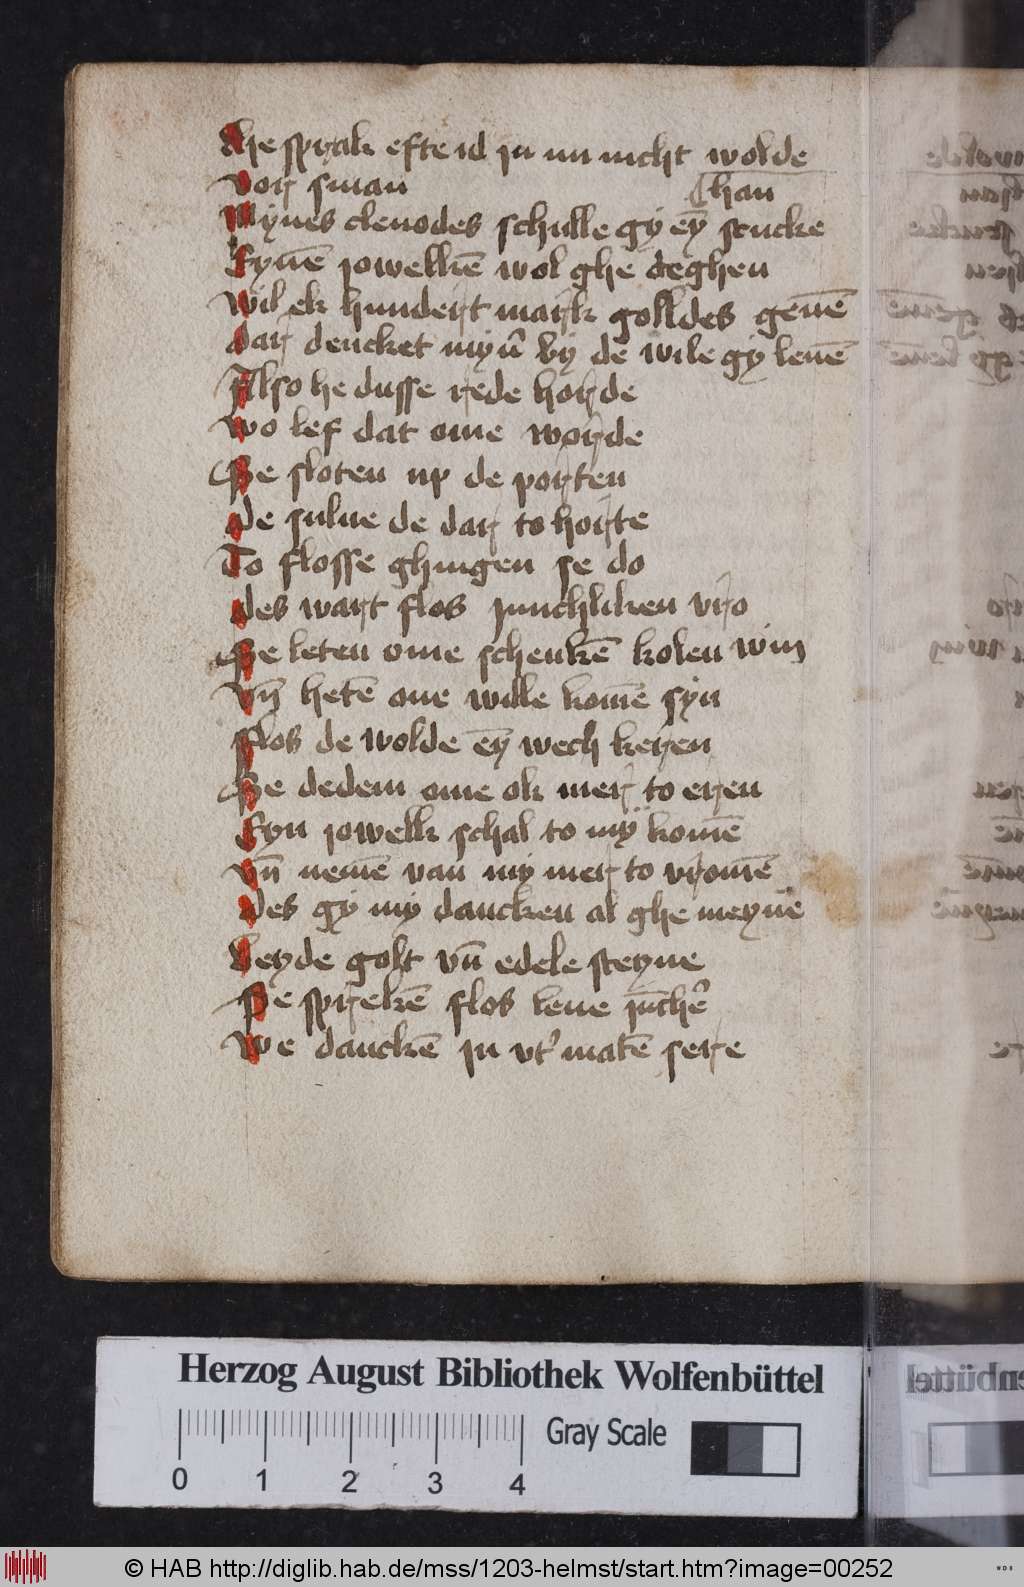 He sprak efte id jn nu nicht wolde
vor sman han
Mynes clenodes schulle gy eȳ stucke
Eynē jowelkē wol ghe deghen
Wil ek hundert mark golldes geuē
dar dencket myn̄ by de wile gy leuē
Also he dusse rede horde
wo lef dat ome worde
Se sloten up de porten
de sulue de dar to horte
To flosse ghingen se do
des wart flos junchliken vro
Se leten ome schenkē kolen win
vn̄ hetē one wille komē syn
flos de wolde eȳ wech keren
Se dedem ome ok mer to eren
Eyn jowelk schal to my komē
vn̄ nemē van my mer to vromē
des gy my dancken al ghe meynē
beyde golt vn̄ edele steyne
Se sprekē flos leue jūcher
we danckē ju vt' matē sere
Herzog August Bibliothek Wolfenbüttel
0 1 2 3 4
Gray Scale
© HAB http://diglib.hab.de/mss/1203-helmst/start.htm?image=00252